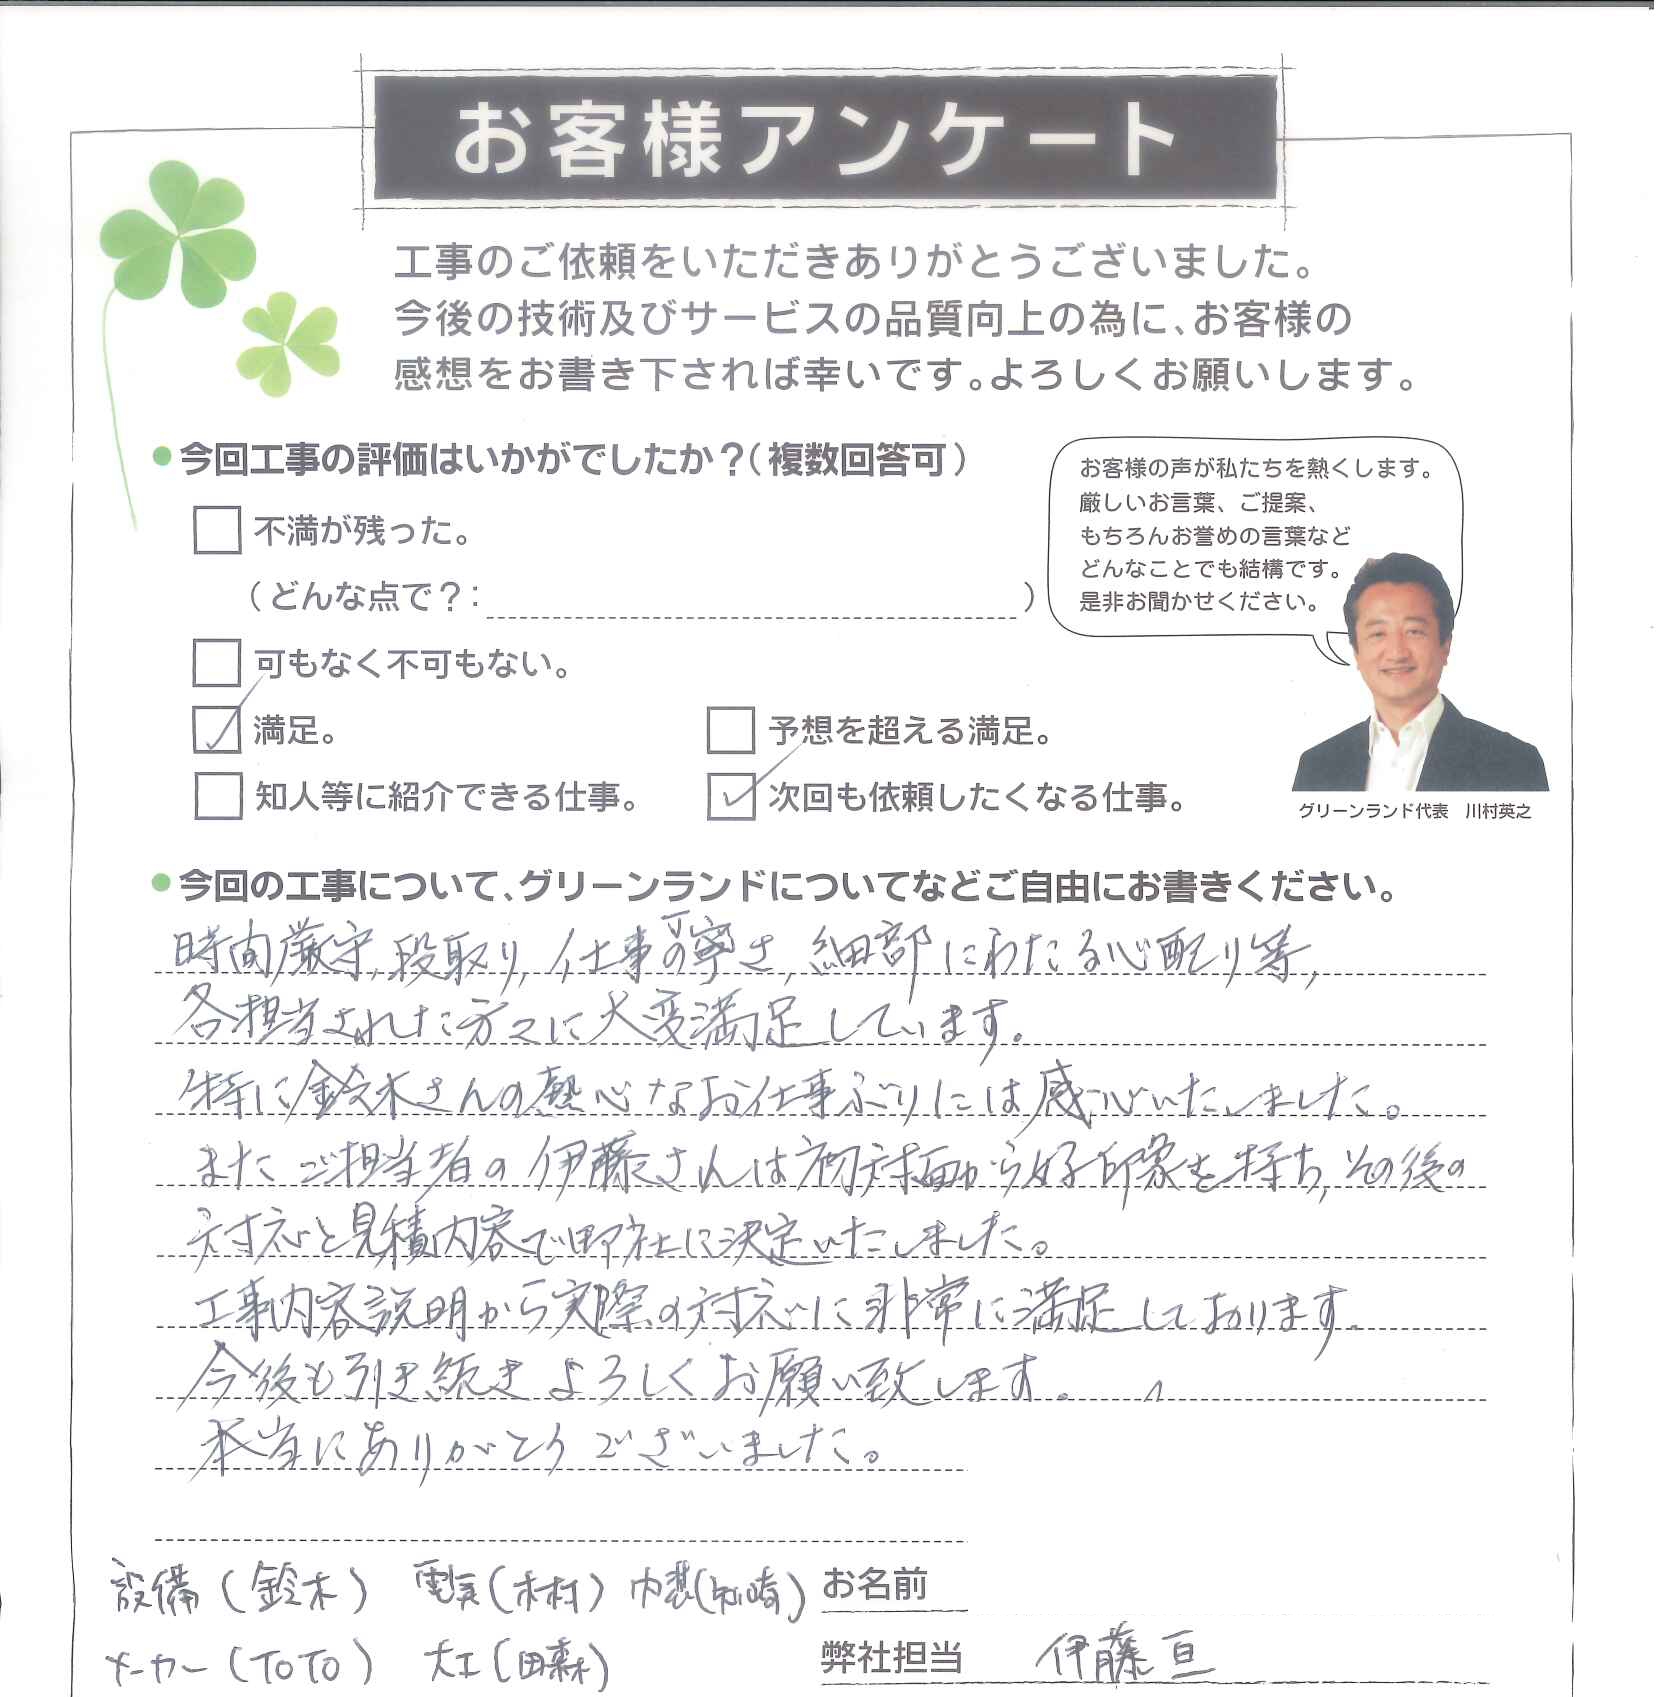 お客様アンケート
工事のご依頼をいただきありがとうございました。
今後の技術及びサービスの品質向上の為に、お客様の
感想をお書き下されば幸いです。よろしくお願いします。
●今回工事の評価はいかがでしたか？（複数回答可）
お客様の声が私たちを熱くします。
厳しいお言葉、ご提案、
もちろんお誉めの言葉など
どんなことでも結構です。
是非お聞かせください。
不満が残った。
（どんな点で？：　）
可もなく不可もない。
満足。
予想を超える満足。
知人等に紹介できる仕事。
次回も依頼したくなる仕事。
グリーンランド代表　川村英之
●今回の工事について、グリーンランドについてなどご自由にお書きください。
時間厳守, 段取り, 仕事の丁寧さ, 細部にわたる心配り等,
各担当された方々に大変満足しています。
特に鈴木さんの熱心なお仕事ぶりには感心いたしました。
またご担当者の伊藤さんは初対面から好印象を持ち, その後の
対応と見積内容で御社に決定いたしました。
工事内容説明から実際の対応に非常に満足しております。
今後も引き続きよろしくお願い致します。
本当にありがとうございました。
設備(鈴木)　電気(木村)　内装(　崎)
お名前
メーカー(TOTO)　大工(田森)
弊社担当　伊藤亘